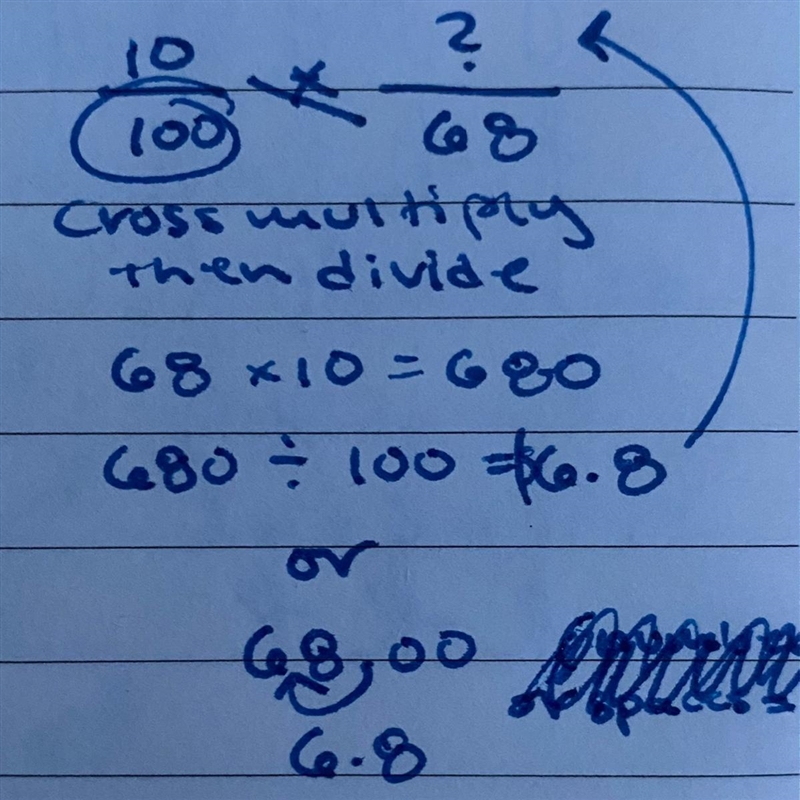 10 × ?
100 68
cross multiply
then divide
68 × 10 = 680
680 ÷ 100 = 6.8
or
68.00
6.8